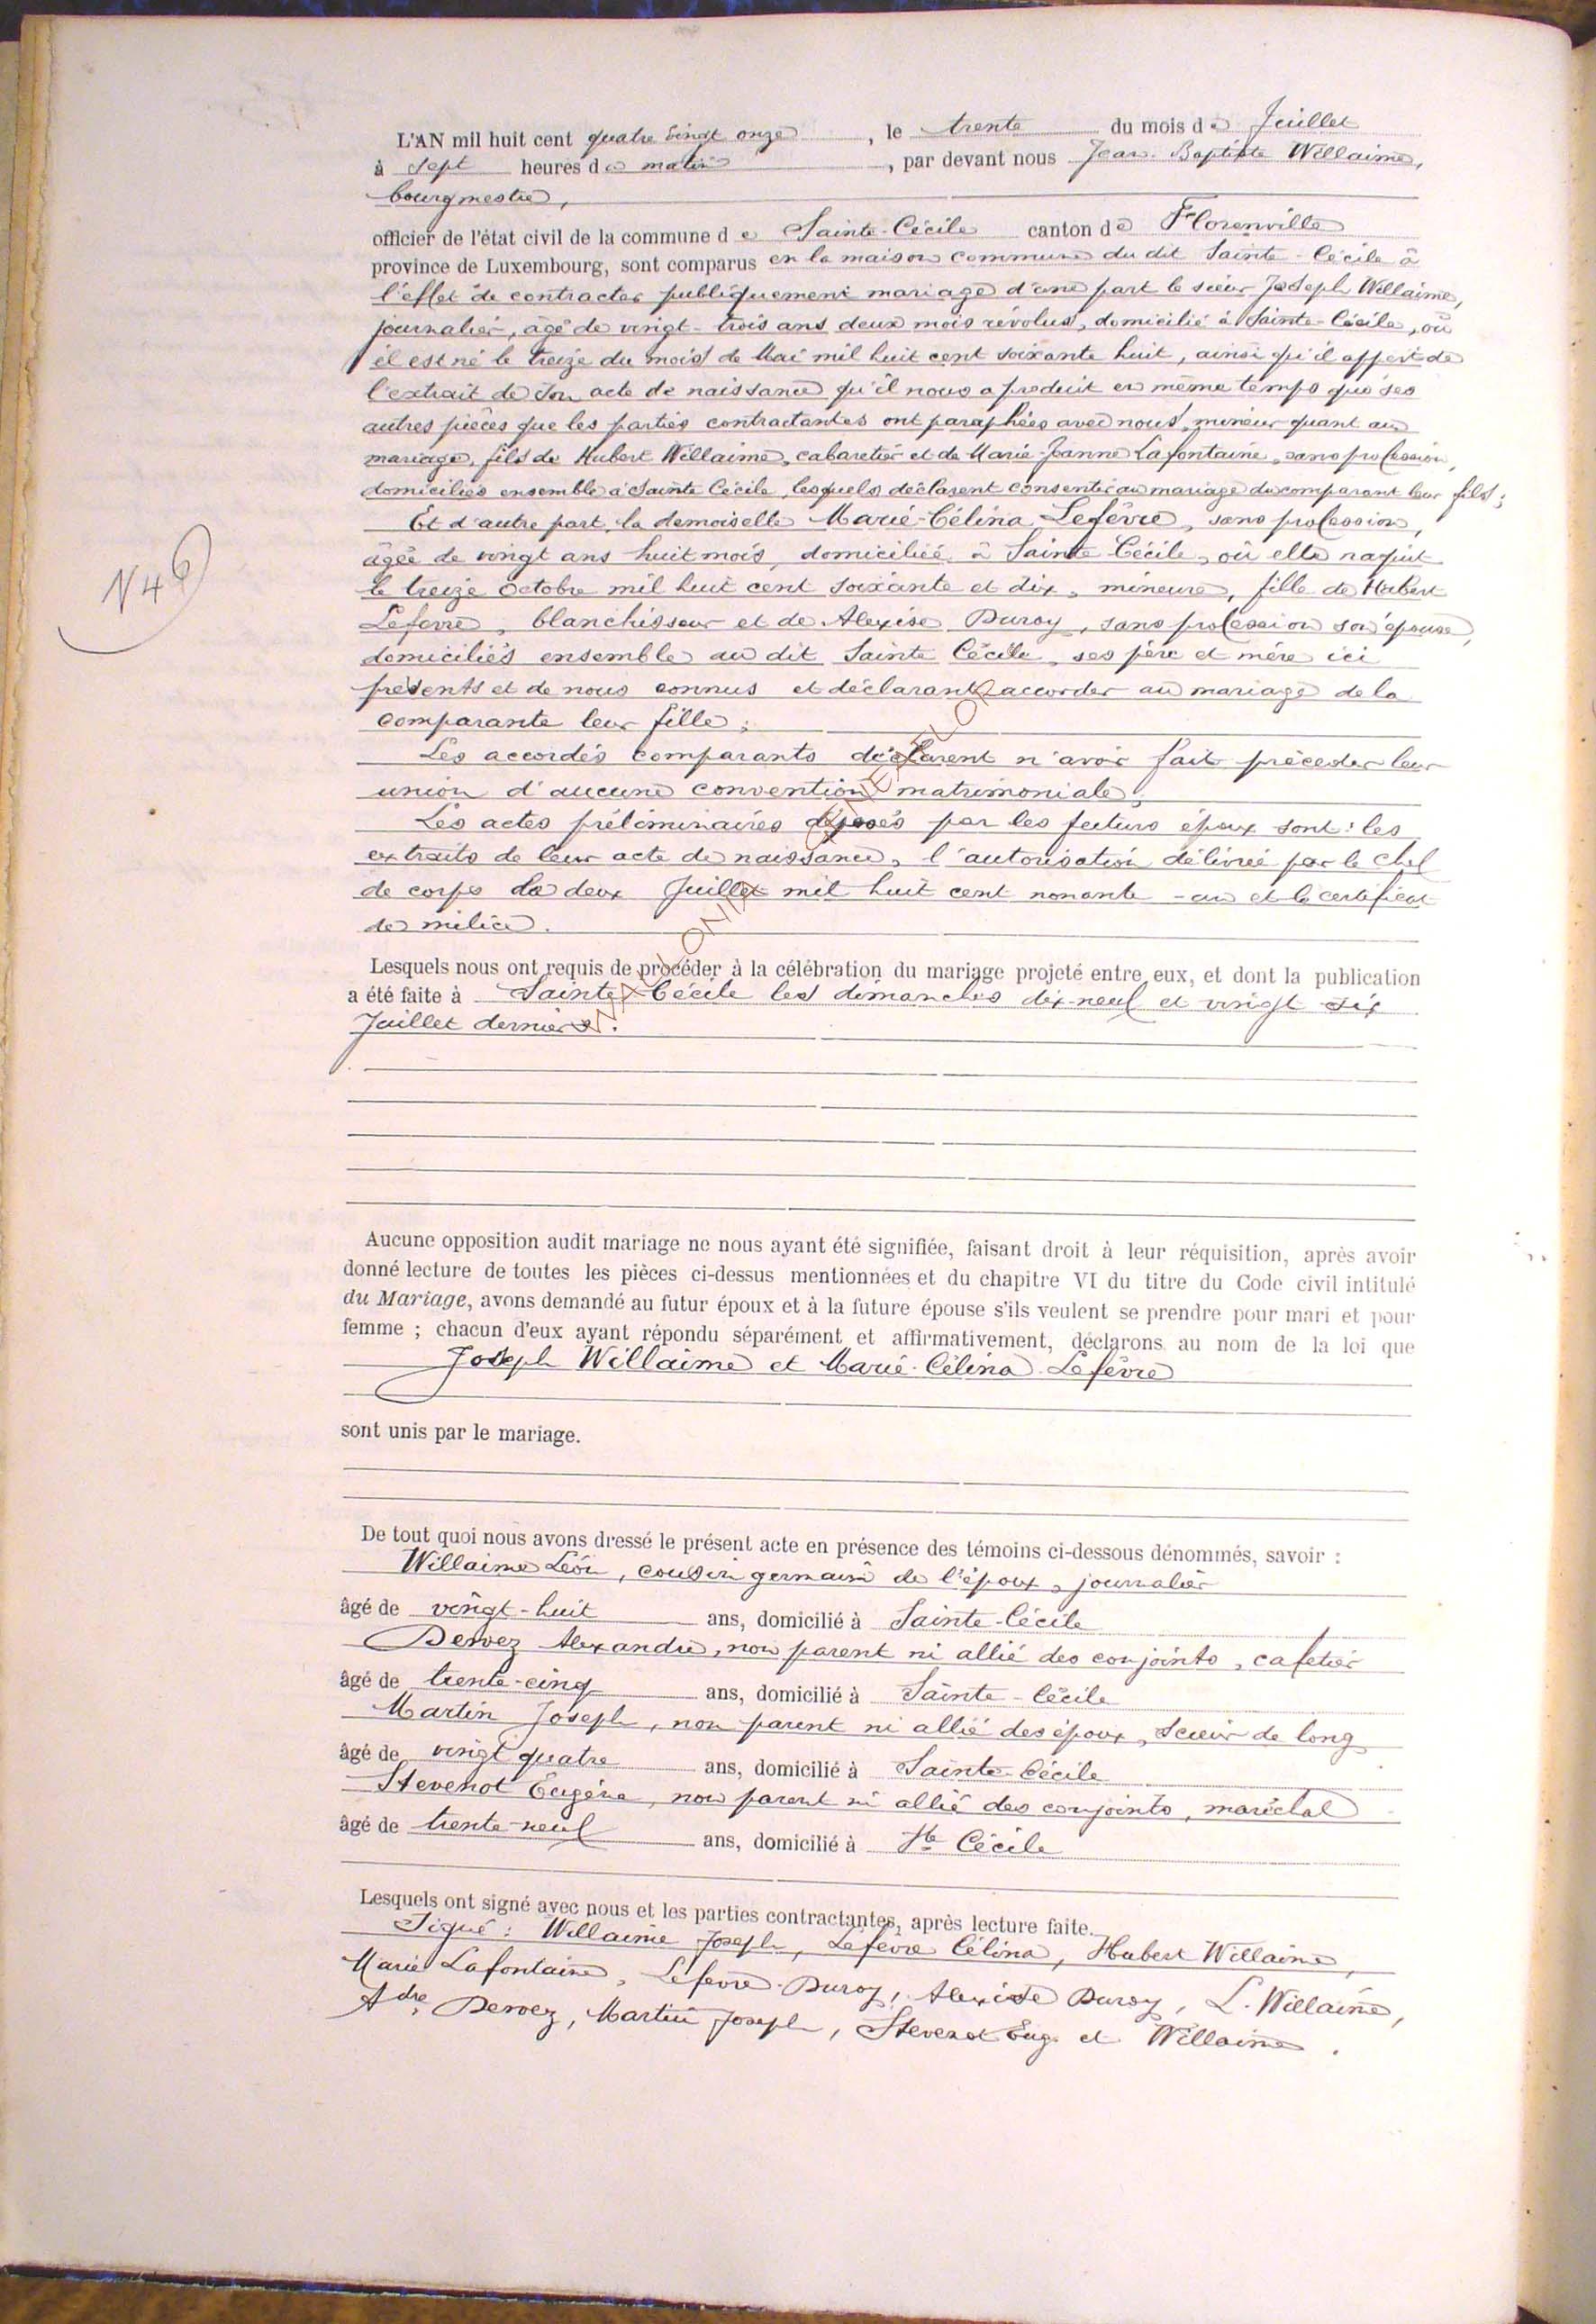 L'AN mil huit cent quatre vingt onze, le trente du mois de Juillet
à sept heures du matin, par devant nous Jean-Baptiste Willaime,
bourgmestre,
officier de l'état civil de la commune de Sainte-Cécile canton de Florenville
province de Luxembourg, sont comparus en la maison commune du dit Sainte-Cécile à
l'effet de contracter publiquement mariage d'une part le sieur Joseph Willaime,
journalier, âgé de vingt-trois ans deux mois révolus, domicilié à Sainte-Cécile, où
il est né le treize du mois de Mai mil huit cent soixante huit, ainsi qu'il appert de
l'extrait de son acte de naissance qu'il nous a produit en même temps que ses
autres pièces que les parties contractantes ont paraphées avec nous, mineur quant au
mariage, fils de Hubert Willaime, cabaretier et de Marie-Jeanne Lafontaine, sans profession,
domiciliés ensemble à Sainte Cécile, lesquels déclarent consentir au mariage du comparant leur fils;
Et d'autre part, la demoiselle Marie-Célina Lefèvre, sans profession,
âgée de vingt ans huit mois, domiciliée à Sainte Cécile, où elle naquit
le treize octobre mil huit cent soixante et dix, mineure, fille de Hubert
Lefevre, blanchisseur et de Alexise Duroy, sans profession son épouse,
domiciliés ensemble au dit Sainte Cécile, ses père et mère ici
présents et de nous connus et déclarant accorder au mariage de la
comparante leur fille;
Les accordés comparants déclarent n'avoir fait précéder leur
union d'aucune convention matrimoniale;
Les actes préliminaires déposés par les futurs époux sont: les
extraits de leur acte de naissance, l'autorisation délivrée par le chef
de corps le deux Juillet mil huit cent nonante-un et le certificat
de milice.
Lesquels nous ont requis de procéder à la célébration du mariage projeté entre eux, et dont la publication
a été faite à Sainte-Cécile les dimanches dix-neuf et vingt-six
Juillet derniers.
N4 6
Aucune opposition audit mariage ne nous ayant été signifiée, faisant droit à leur réquisition, après avoir
donné lecture de toutes les pièces ci-dessus mentionnées et du chapitre VI du titre du Code civil intitulé
du Mariage, avons demandé au futur époux et à la future épouse s'ils veulent se prendre pour mari et pour
femme ; chacun d'eux ayant répondu séparément et affirmativement, déclarons au nom de la loi que
Joseph Willaime et Marie-Célina Lefèvre
sont unis par le mariage.
De tout quoi nous avons dressé le présent acte en présence des témoins ci-dessous dénommés, savoir :
Willaime Léon, cousin germain de l'époux, journalier
âgé de vingt-huit ans, domicilié à Sainte-Cécile
Dervez Alexandre, non parent ni allié des conjoints, cafetier
âgé de trente-cinq ans, domicilié à Sainte-Cécile
Martin Joseph, non parent ni allié des époux, scieur de long
âgé de vingt quatre ans, domicilié à Sainte-Cécile
Stevenot Eugène, non parent ni allié des conjoints, maréchal
âgé de trente-neuf ans, domicilié à Ste Cécile
Lesquels ont signé avec nous et les parties contractantes, après lecture faite.
Signé: Willaime Joseph, Lefèvre Célina, Hubert Willaime,
Marie Lafontaine, Lefevre-Duroy, Alexise Duroy, L. Willaime,
Adre Dervez, Martin Joseph, Stevenot Eug. et Willaime.